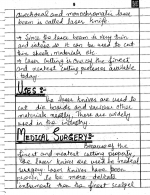 directional and monochromatic laser
beam is called laser knife.
→ Since the laser beam is very thin
and intense so it can be used to cut
the sheet, materials etc.
→ laser cutting is one of the finest
and neatest cutting processes available
today.
USES :-
The laser knives are used to
cut die boards and various other
materials neatly. These are widely
used in the industry.
MEDICAL SURGERY :-
Because of the
finest and neatest cutting property
the laser knives are used in medical
surgery. Laser knives have been
proven to be more delicate
instruments than the finest scalpel